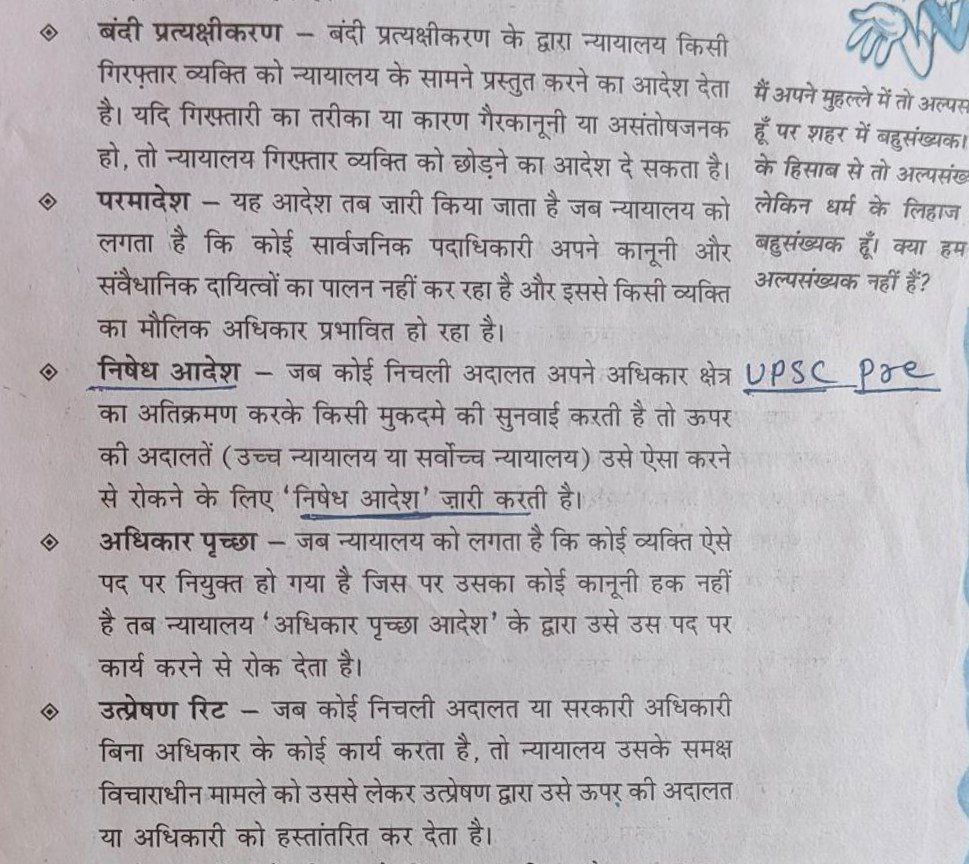 बंदी प्रत्यक्षीकरण – बंदी प्रत्यक्षीकरण के द्वारा न्यायालय किसी
गिरफ़्तार व्यक्ति को न्यायालय के सामने प्रस्तुत करने का आदेश देता
है। यदि गिरफ़्तारी का तरीका या कारण गैरकानूनी या असंतोषजनक
हो, तो न्यायालय गिरफ़्तार व्यक्ति को छोड़ने का आदेश दे सकता है।
परमादेश – यह आदेश तब ज़ारी किया जाता है जब न्यायालय को
लगता है कि कोई सार्वजनिक पदाधिकारी अपने कानूनी और
संवैधानिक दायित्वों का पालन नहीं कर रहा है और इससे किसी व्यक्ति
का मौलिक अधिकार प्रभावित हो रहा है।
निषेध आदेश – जब कोई निचली अदालत अपने अधिकार क्षेत्र
का अतिक्रमण करके किसी मुकदमे की सुनवाई करती है तो ऊपर
की अदालतें (उच्च न्यायालय या सर्वोच्च न्यायालय) उसे ऐसा करने
से रोकने के लिए ‘निषेध आदेश’ ज़ारी करती है।
अधिकार पृच्छा – जब न्यायालय को लगता है कि कोई व्यक्ति ऐसे
पद पर नियुक्त हो गया है जिस पर उसका कोई कानूनी हक नहीं
है तब न्यायालय ‘अधिकार पृच्छा आदेश’ के द्वारा उसे उस पद पर
कार्य करने से रोक देता है।
उत्प्रेषण रिट – जब कोई निचली अदालत या सरकारी अधिकारी
बिना अधिकार के कोई कार्य करता है, तो न्यायालय उसके समक्ष
विचाराधीन मामले को उससे लेकर उत्प्रेषण द्वारा उसे ऊपर की अदालत
या अधिकारी को हस्तांतरित कर देता है।
मैं अपने मुहल्ले में तो
हूँ पर शहर में बहुसंख्यक।
के हिसाब से तो
लेकिन धर्म के लिहाज
बहुसंख्यक हूँ। क्या हम
अल्पसंख्यक नहीं हैं?
UPSC Pre